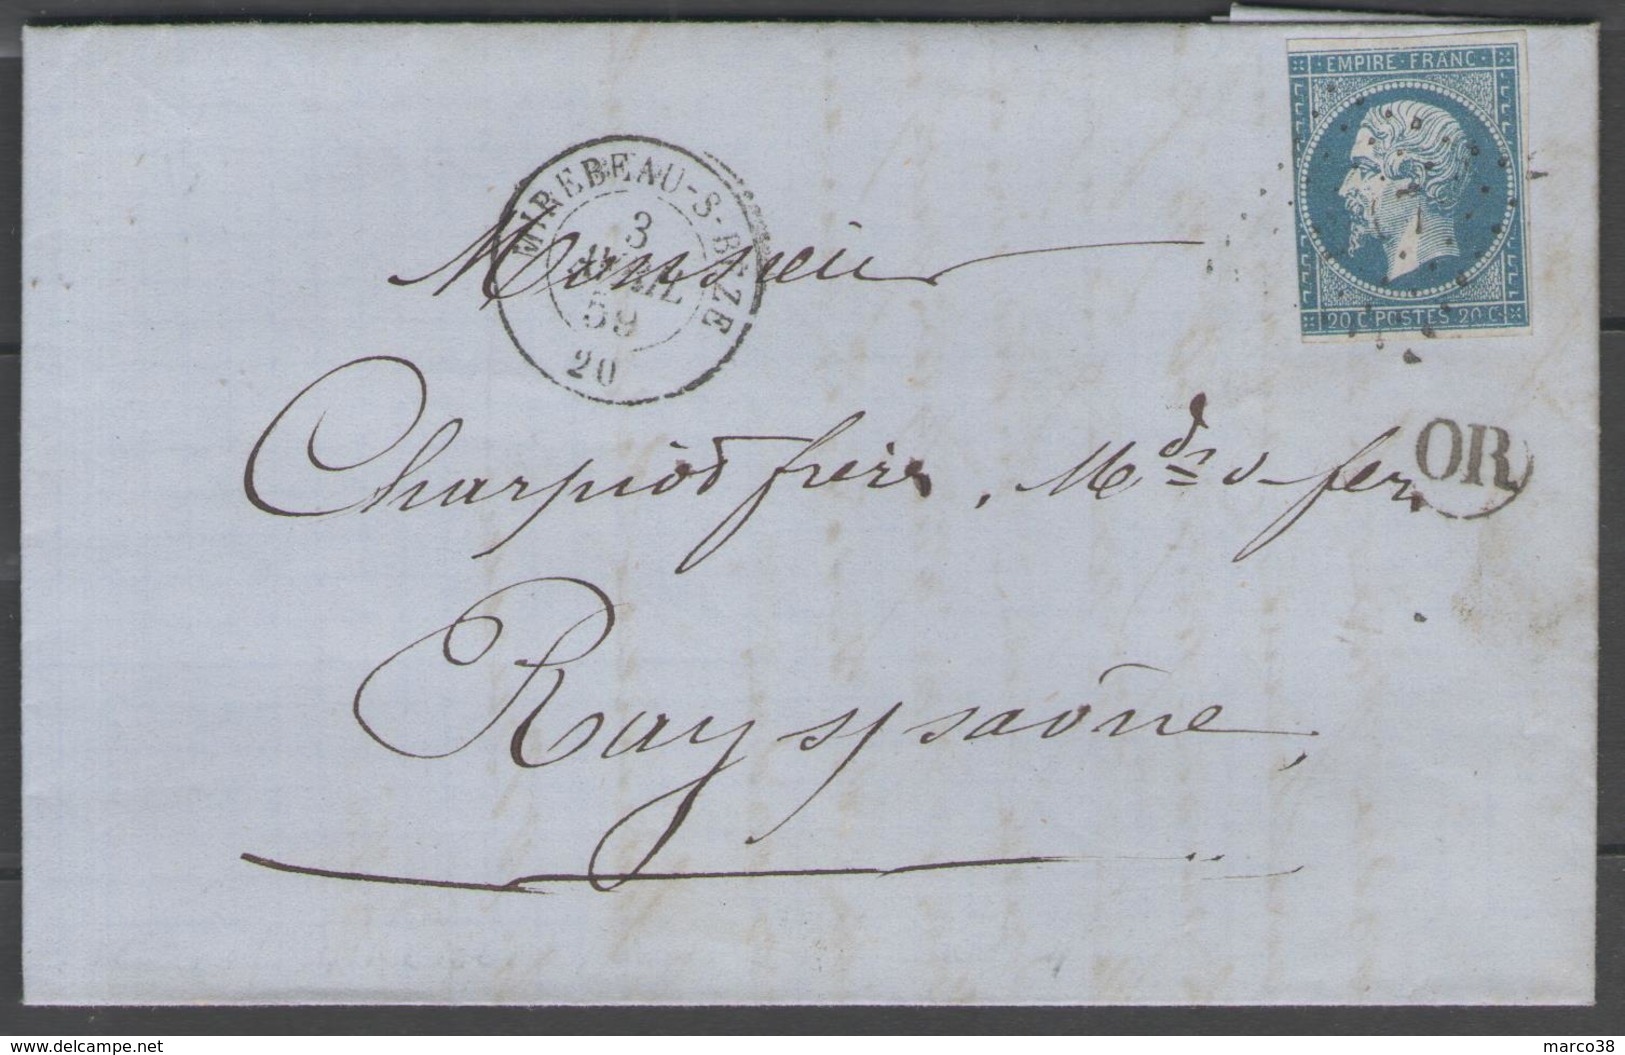 EMPIRE · FRANC ·
20 C · POSTES 20 C ·
MIREBEAU-S-BEZE
3
AVRIL
59
20
Monsieur
Charpiot frère, Mds d fer,
OR
Ray s/ saône,
www.delcampe.net
marco38